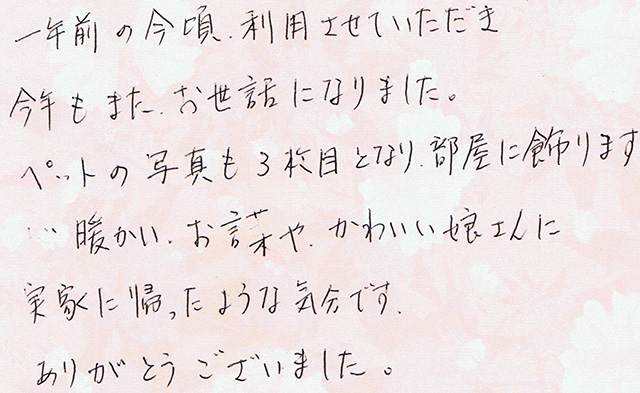 一年前の今頃、利用させていただき
今年もまた、お世話になりました。
ペットの写真も3枚目となり、部屋に飾ります
… 暖かい、お言葉や、かわいい娘さんに
実家に帰ったような気分です、
ありがとうございました。